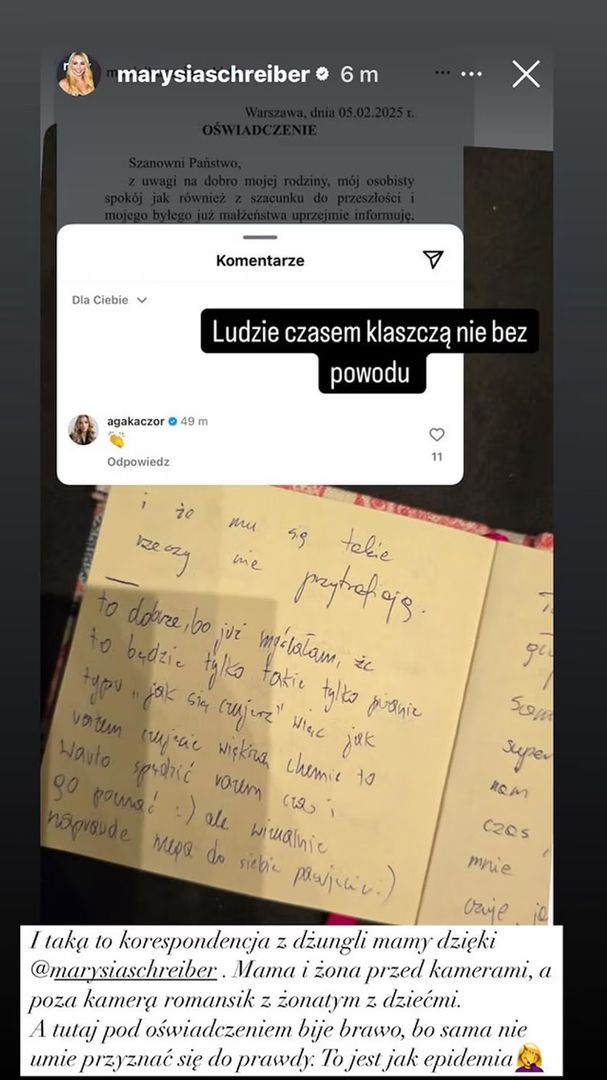 marysiaschreiber 6 m
Warszawa, dnia 05.02.2025 r.
OŚWIADCZENIE
Szanowni Państwo,
z uwagi na dobro mojej rodziny, mój osobisty
spokój jak również z szacunku do przeszłości i
mojego byłego już małżeństwa uprzejmie informuję,
Komentarze
Dla Ciebie
Ludzie czasem klaszczą nie bez
powodu
agakaczor 49 m
👏
Odpowiedz
11
i że mu się takie
rzeczy nie przytrafiają.
to dobrze, bo już myślałam, że
to będzie tylko takie tylko pisanie
typu "jak się czujesz" więc jak
razem czujecie większą chemię to
warto spędzić razem czas i
go poznać :) ale wizualnie
naprawdę mega do siebie pasujecie :)
super
nam
czas
mnie
czuję
I taką to korespondencja z dżungli mamy dzięki
@marysiaschreiber . Mama i żona przed kamerami, a
poza kamerą romansik z żonatym z dziećmi.
A tutaj pod oświadczeniem bije brawo, bo sama nie
umie przyznać się do prawdy. To jest jak epidemia🤦‍♀️